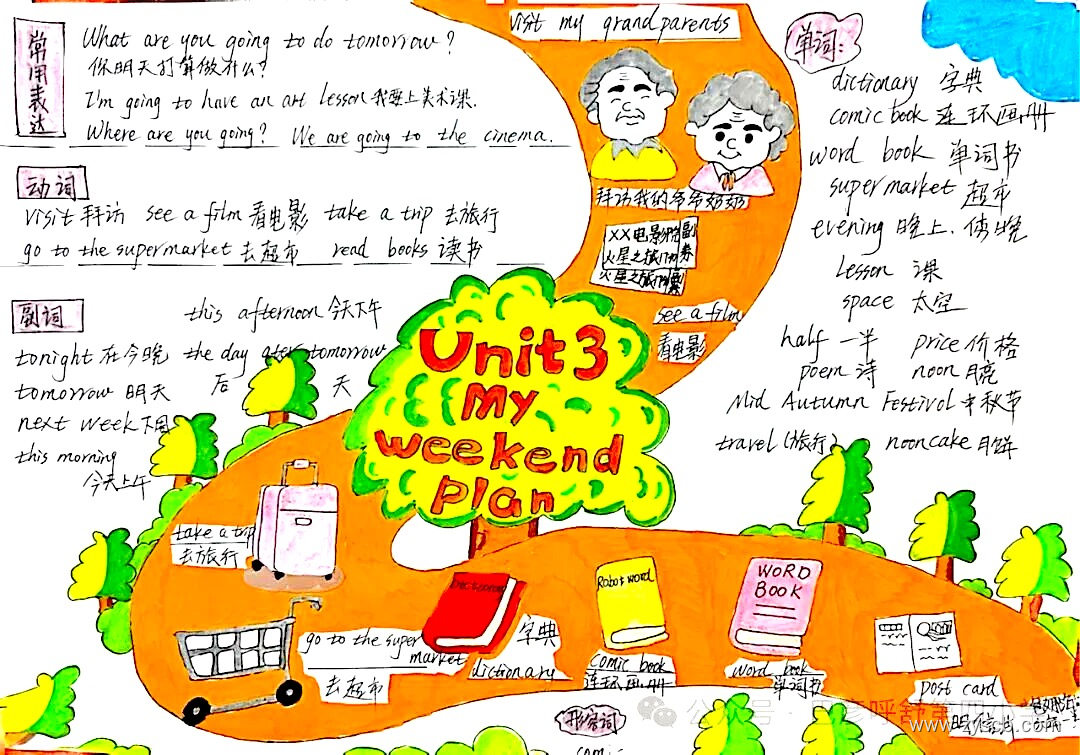 常用表达
What are you going to do tomorrow?
你明天打算做什么?
I'm going to have an art lesson 我要上美术课.
Where are you going? We are going to the cinema.
动词
visit 拜访 see a film 看电影 take a trip 去旅行
go to the supermarket 去超市 read books 读书
副词
this afternoon 今天下午
tonight 在今晚 the day after tomorrow
tomorrow 明天 后 天
next week 下周
this morning
今天上午
visit my grandparents
拜访我的爷爷奶奶
XX电影院副
火星之旅门票券
火星之旅门票副
see a film
看电影
Unit 3
My
weekend
plan
单词:
dictionary 字典
comic book 连环画册
word book 单词书
supermarket 超市
evening 晚上.傍晚
lesson 课
space 太空
half 一半 price 价格
poem 诗 noon 月亮
Mid Autumn Festivol 中秋节
travel (旅行) nooncake 月饼
take a trip
去旅行
go to the super
market
去超市
字典
dictionary
Robot word
Comic book
连环画册
WORD
BOOK
word book
单词书
post card
明信片
形容词
www.yejs.com.cn